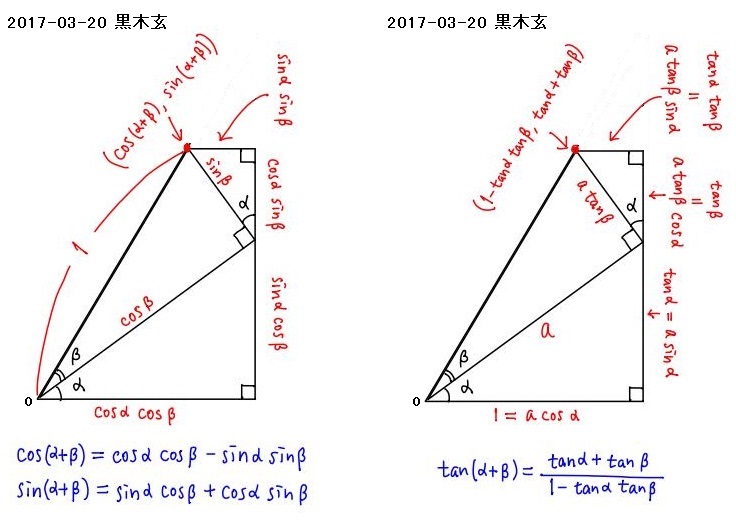 2017-03-20 黒木玄
(cos(α+β), sin(α+β))
sinα sinβ
sinβ
cosα sinβ
α
1
cosβ
sinα cosβ
β
α
0
cosα cosβ
cos(α+β) = cosα cosβ − sinα sinβ
sin(α+β) = sinα cosβ + cosα sinβ
2017-03-20 黒木玄
(1-tanα tanβ, tanα+tanβ)
tanα tanβ
=
a tanβ sinα
a tanβ
tanβ
=
a tanβ cosα
α
a
tanα = a sinα
β
α
0
1 = a cosα
tan(α+β) = (tanα + tanβ)/(1 − tanα tanβ)